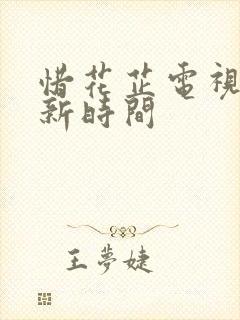 惜花芷電視
新時間
王夢婕